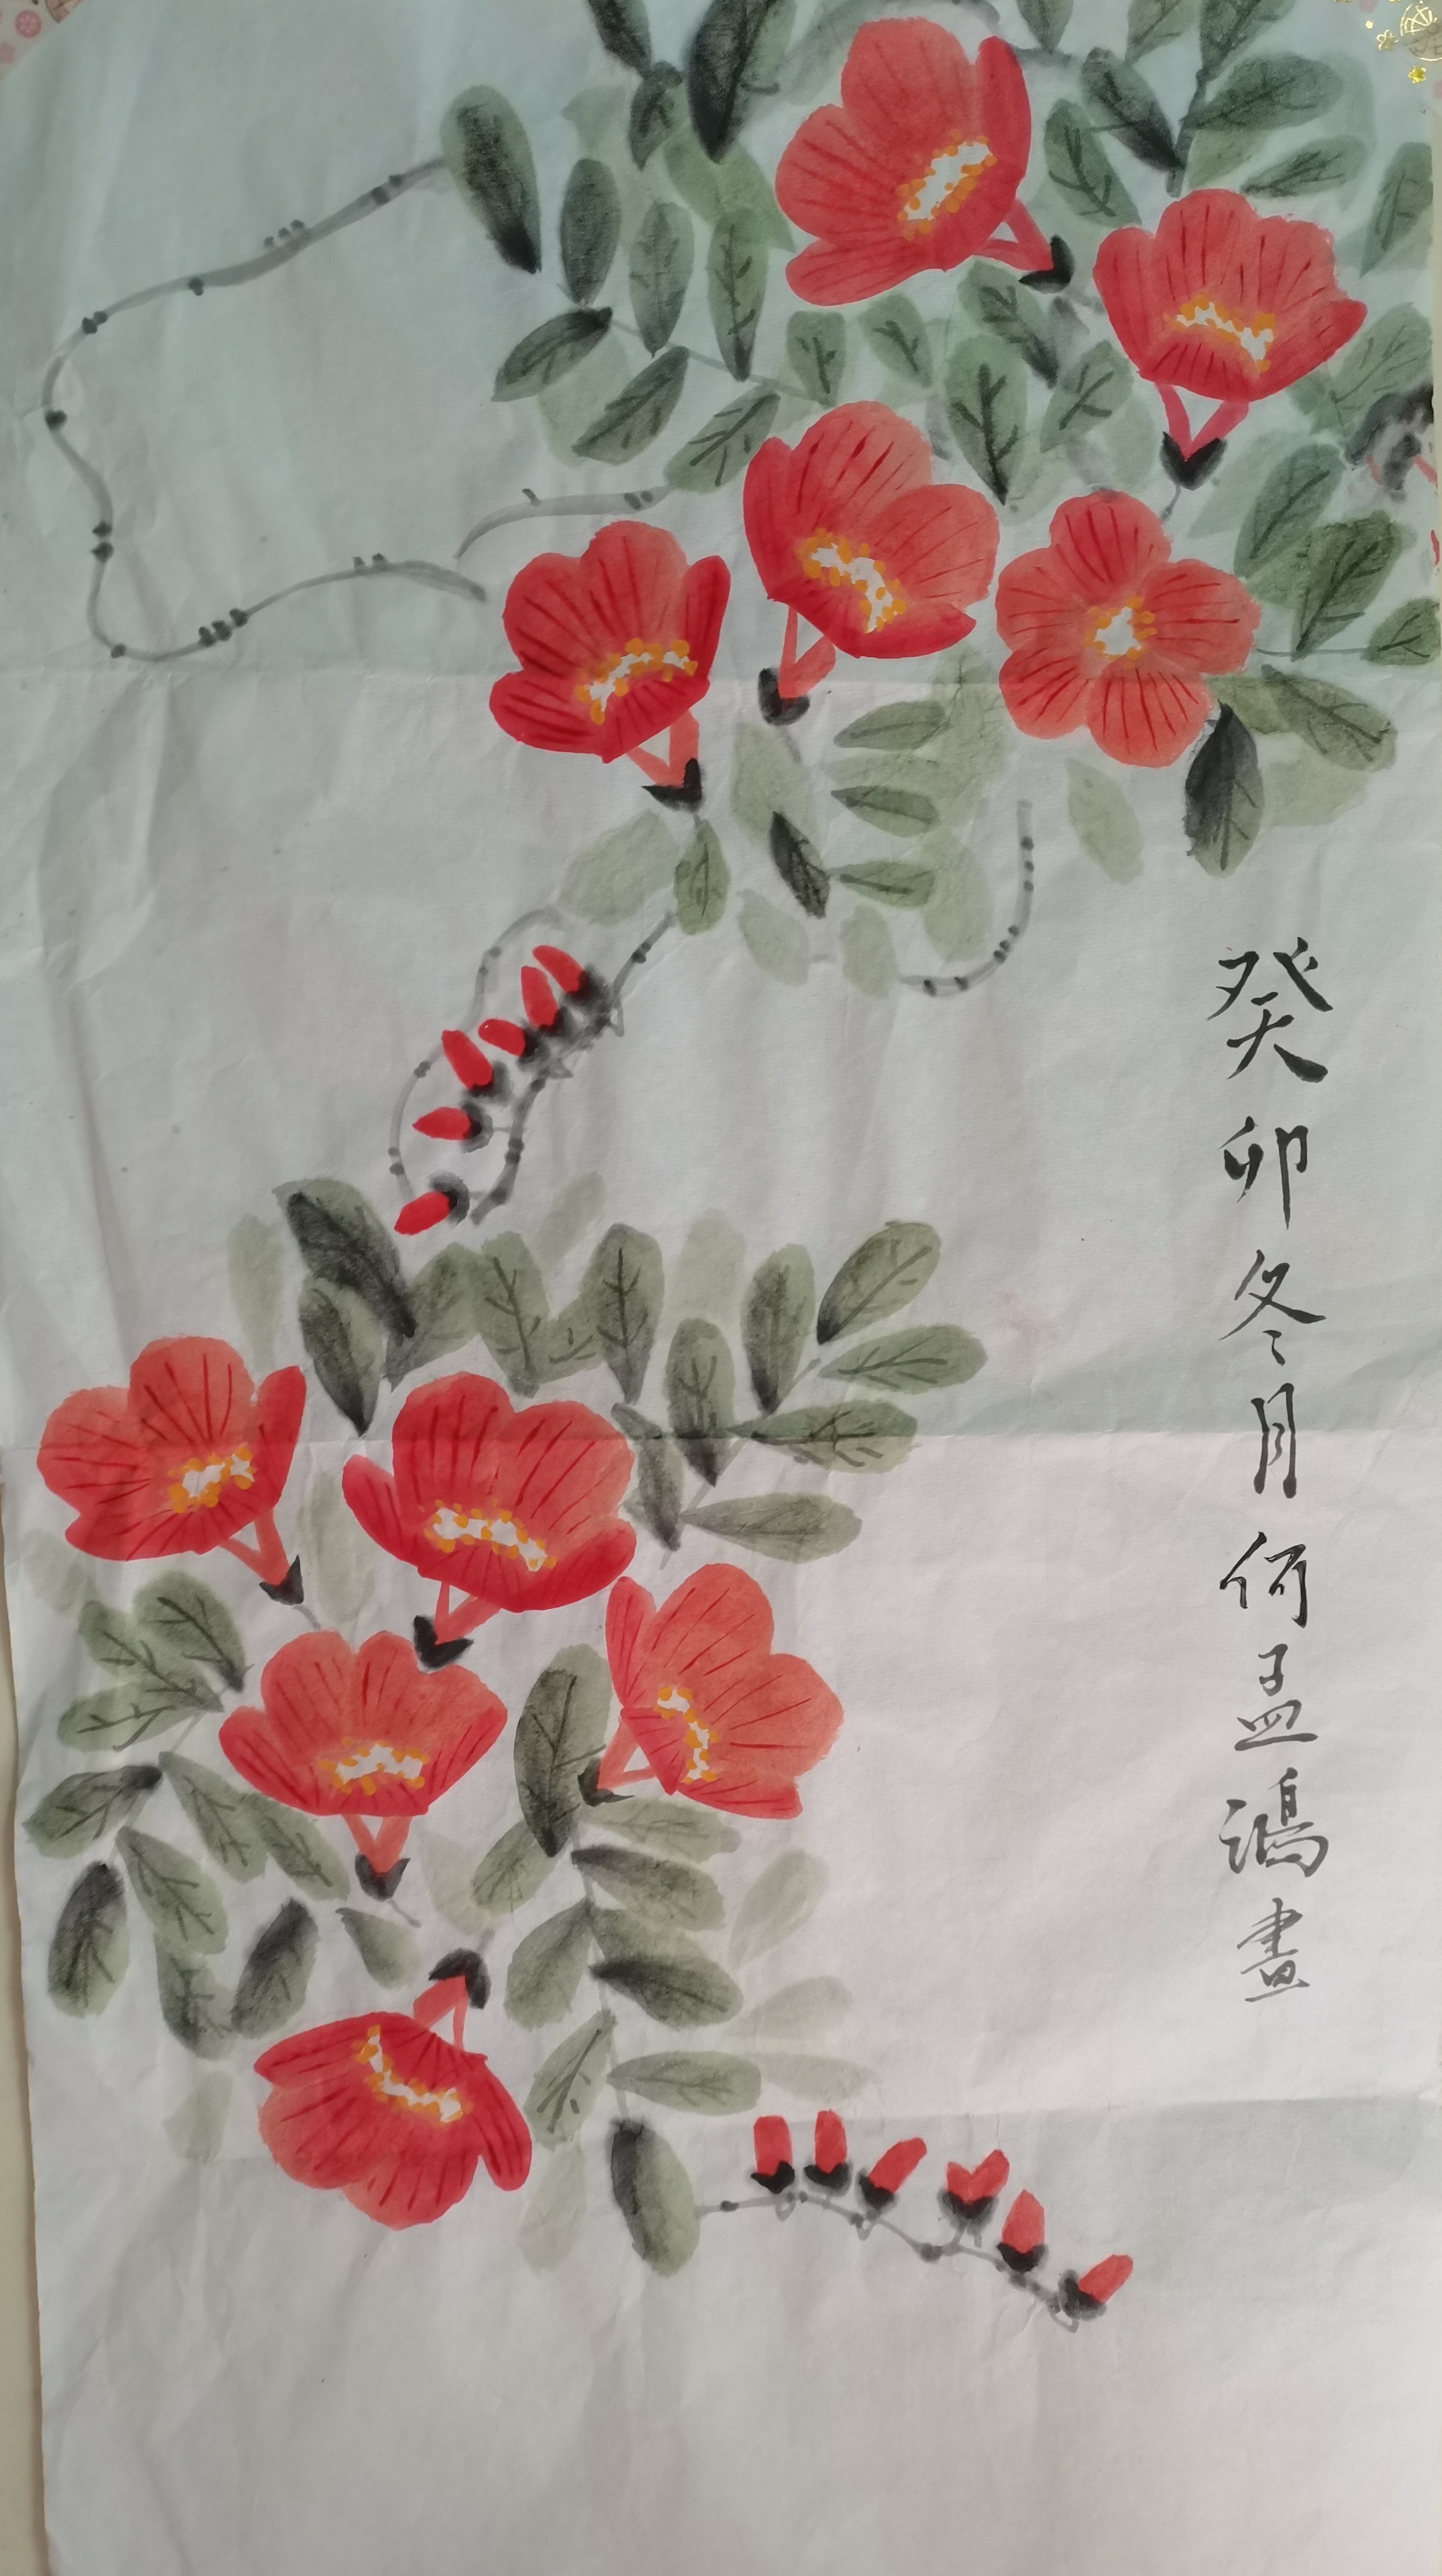 癸卯冬月何孟鴻畫